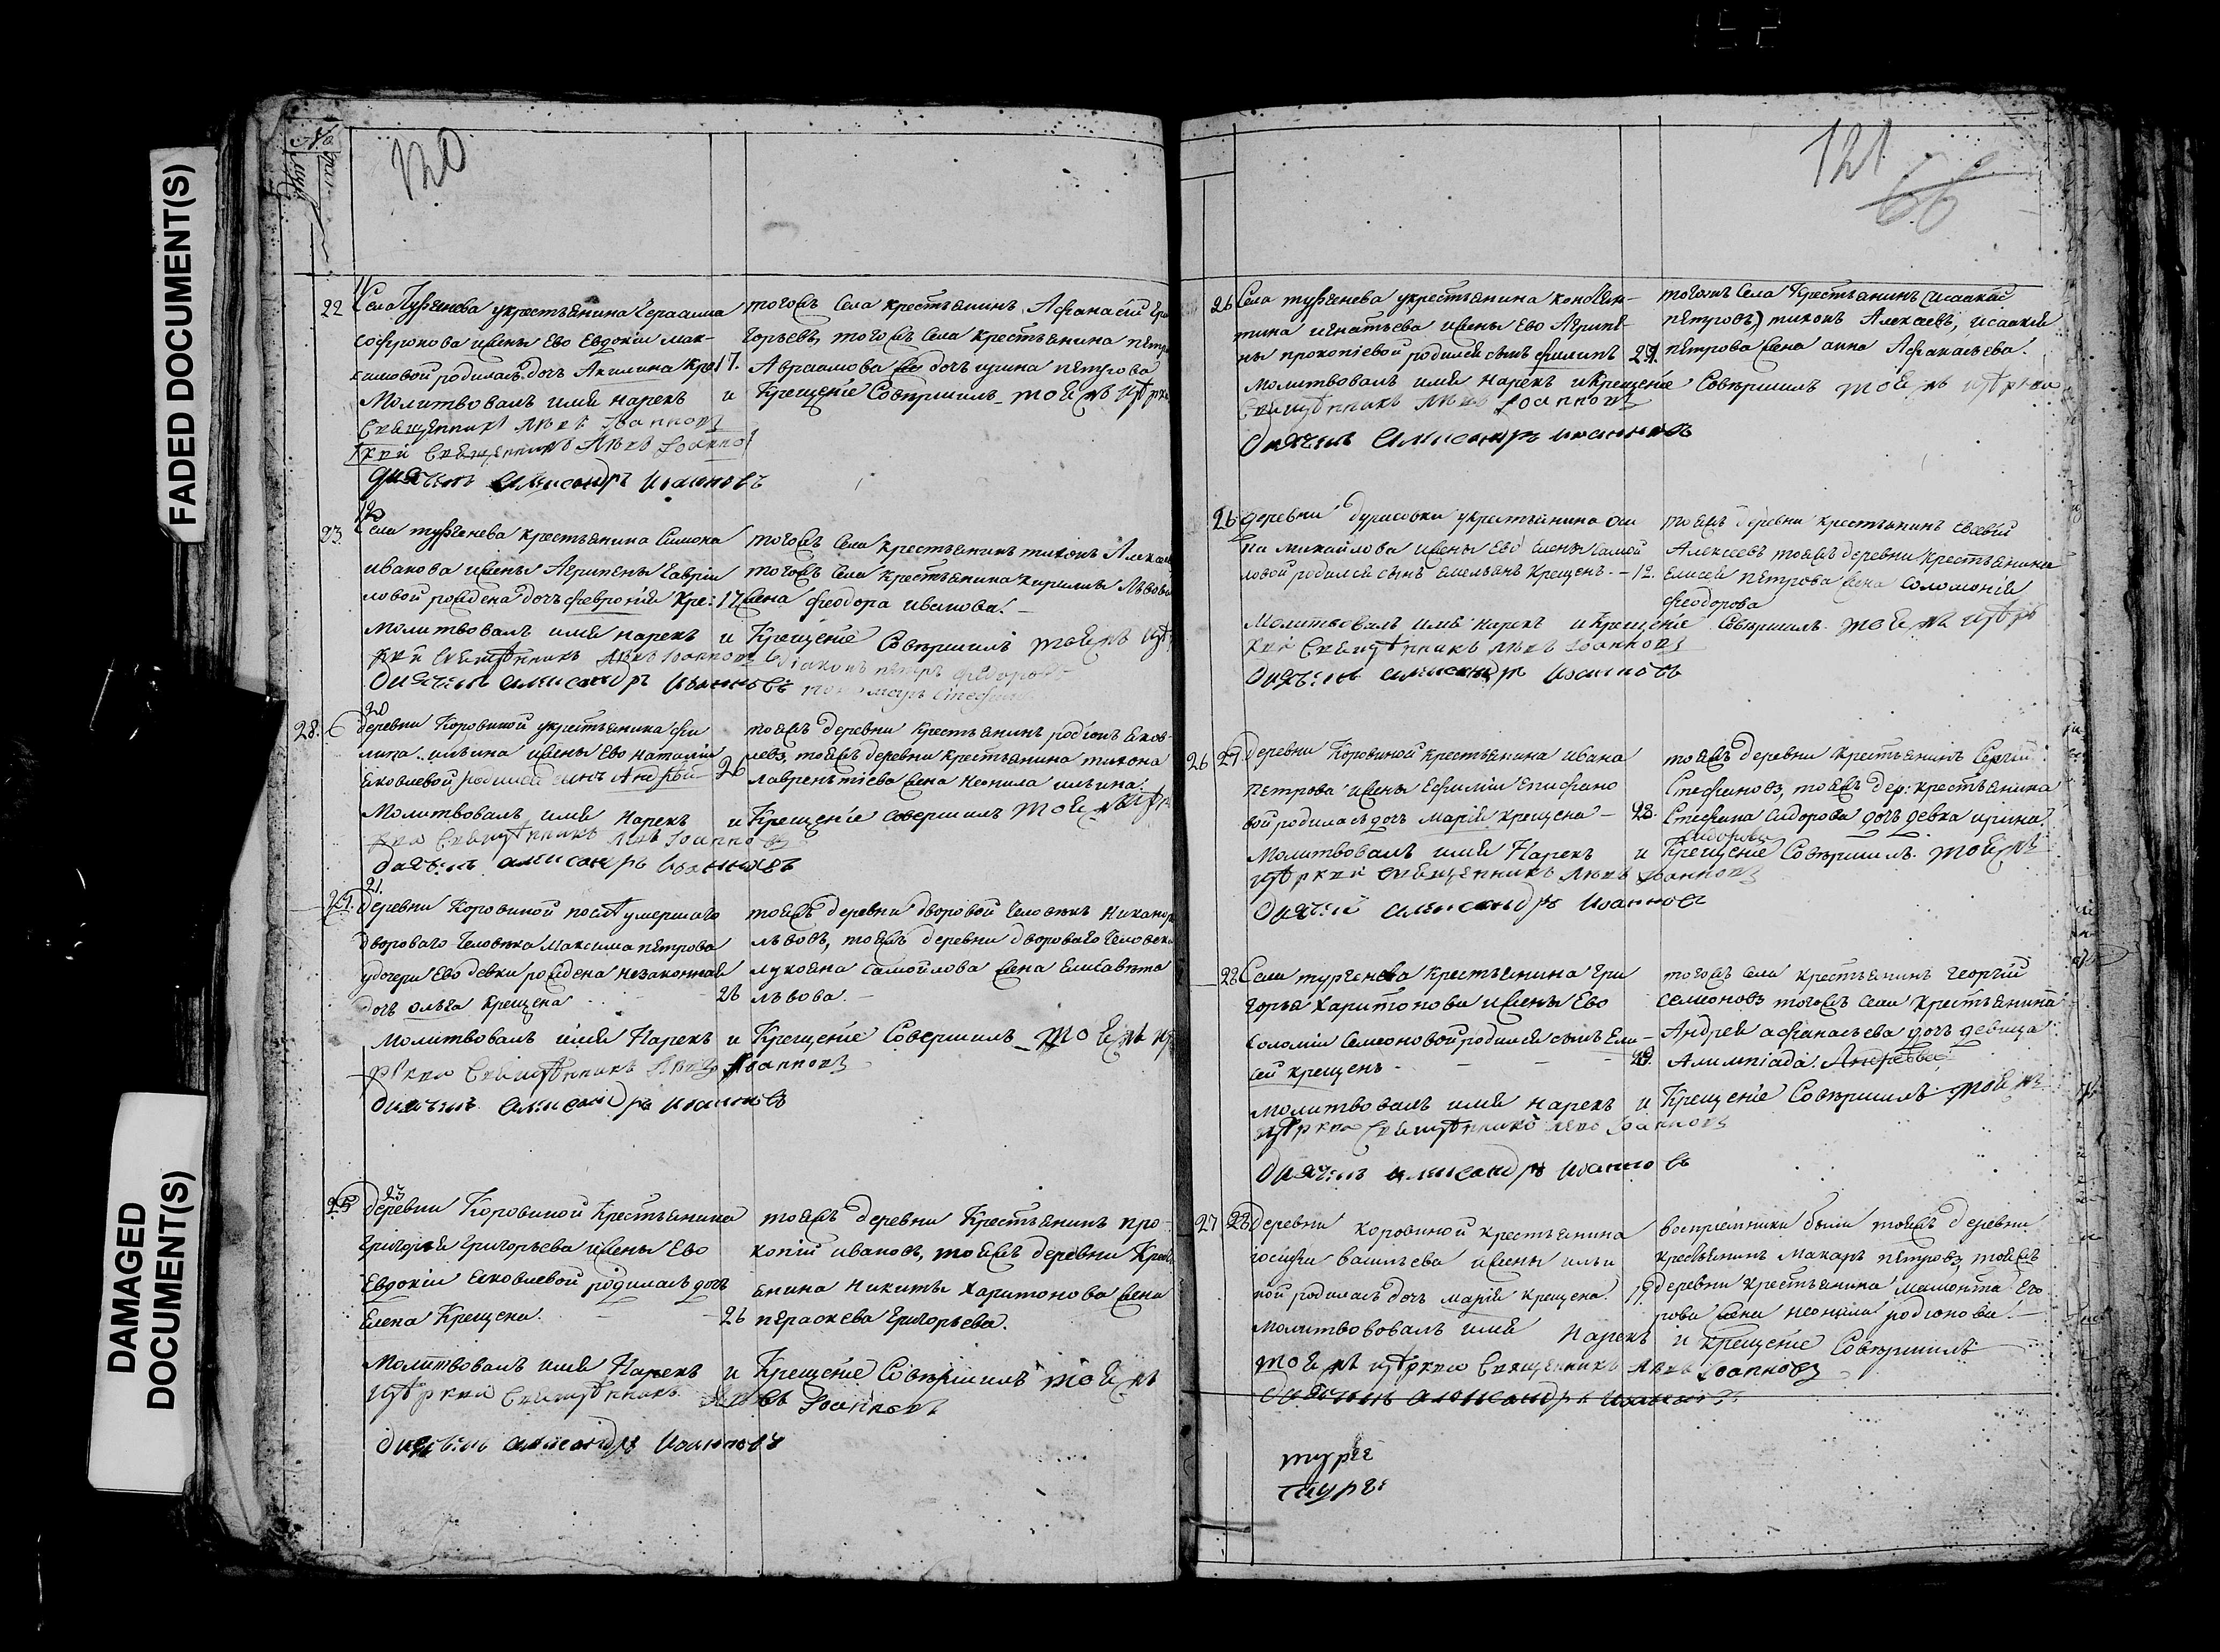 FADED DOCUMENT(S)
DAMAGED
DOCUMENT(S)
№
120
22 Села Тургенева у крестьянина Герасима
Софронова и жены ево Евдокіи мак-
симовой родилась дочь Акилина кре: 17.
молитвовалъ имя нарекъ и
Священникъ Левъ Іоанновъ
Священникъ Левъ Іоанно
дьячекъ Александръ Иоанновъ
тогожъ села крестьянинъ Афанасій гри
горьевъ, тогожъ села крестьянина петра
Авраамова дочь ирина петрова
Крещеніе Совершилъ тоежъ церкви
23. Села тургенева крестьянина Симона
иванова и жены Агрипены Гаврии
ловой рождена дочь феврония кре: 17
молитвовалъ имя нарекъ и
кви Священникъ Левъ Иоанновъ діаконъ петръ федоровъ
дьячекъ александръ Иоанновъ пономарь Стефан
тогожъ села крестьянинъ тихонъ Алексе
тогожъ села крестьянина кирилы Львова
жена феодора иванова.
Крещеніе Совершилъ тоежъ цер
20
28. деревни Коровиной у крестьянина фи
липа ильина и жены ево наталіи
яковлевой родился сынъ Андрей 26
молитвовалъ имя нарекъ и
Священникъ Левъ Іоанновъ
дьячекъ александръ Иоанновъ
тоежъ деревни крестьянинъ родіонъ яков-
левъ, тоежъ деревни крестьянина тихона
лаврентіева жена неонила ильина.
Крещеніе совершилъ тоежъ церк
21.
деревни Коровиной после умершаго
двороваго человека Максима петрова
у дочери ево девки рождена незаконная
дочь ольга крещена 26
молитвовалъ имя нарекъ и
Священникъ Левъ Іоанновъ
дьячекъ александръ иоанновъ
тоежъ деревни дворовой человекъ никаноръ
львовъ, тоежъ деревни двороваго человека
лукояна самойлова жена Елисавета
львова.
Крещеніе Совершилъ тоежъ це
23
25 деревни Коровиной Крестьянина
григорія григорьева и жены ево
Евдокіи яковлевой родилась дочь
Елена крещена. 26
молитвовалъ имя нарекъ и
церкви Священникъ Левъ Іоанновъ
дьячекъ александръ Иоанновъ
тоежъ деревни Крестьянинъ про-
копій ивановъ, тоежъ деревни Крест
янина никиты Харитонова жена
параскева григорьева.
Крещеніе Совершилъ тоежъ
121
66
26 Села тургенева у крестьянина констан-
тина игнатьева и жены ево Агрипе-
ны прокопіевой родился сынъ филипъ
молитвовалъ имя нарекъ и крещеніе
Священникъ Левъ Іоанновъ
дьячекъ Александръ иоанновъ
тогожъ села крестьянинъ исаакій
петровъ) тихонъ Алексеевъ, исаакія
петрова жена анна Афанасьева.
Совершилъ тоежъ церкви
26 деревни дурасовки у крестьянина оси
па михайлова и жены ево Елены самой
ловой родился сынъ емельянъ крещенъ. 12.
молитвовалъ имя нарекъ и крещеніе
кви Священникъ левъ Іоанновъ
дьячекъ александръ Иоанновъ
тоежъ деревни крестьянинъ
Алексеевъ тоежъ деревни крестьянина
Елисея петрова жена соломонія
феодорова
Совершилъ тоежъ церк
26 27 деревни Коровиной крестьянина ивана
петрова и жены Ефиміи епифано
вой родилась дочь марія крещена
молитвовалъ имя нарекъ и
церкви Священникъ Левъ Іоанновъ
дьячекъ александръ Иоанновъ
тоежъ деревни крестьянинъ Сергій
Стефановъ, тоежъ дер: крестьянина
Стефана Сидорова дочь девка ирина
Крещеніе Совершилъ тоежъ
Села тургенева крестьянина гри
горья харитонова и жены ево
соломіи семионовой родился сынъ Ели-
сей крещенъ
молитвовалъ имя нарекъ и
церкви Священникъ левъ Іоанновъ
дьячекъ александръ Иоанновъ
тогожъ села крестьянинъ георгій
семионовъ тогожъ села крестьянина
Андрея афанасьева дочь девица
Алимпіада.
Крещеніе Совершилъ тоежъ
27 28 деревни коровиной крестьянина
іосифа васильева и жены ульи
ной родилась дочь марія крещена. 19
молитвововалъ имя нарекъ и крещеніе Совершилъ
тоежъ церкви Священникъ Левъ Іоанновъ
дьячекъ александръ Иоанновъ
воспріемники были тоежъ деревни
крестьянинъ Макаръ петровъ, тоежъ
деревни крестьянина мамонта Его
рова жена неонила родіонова.
турге
турге